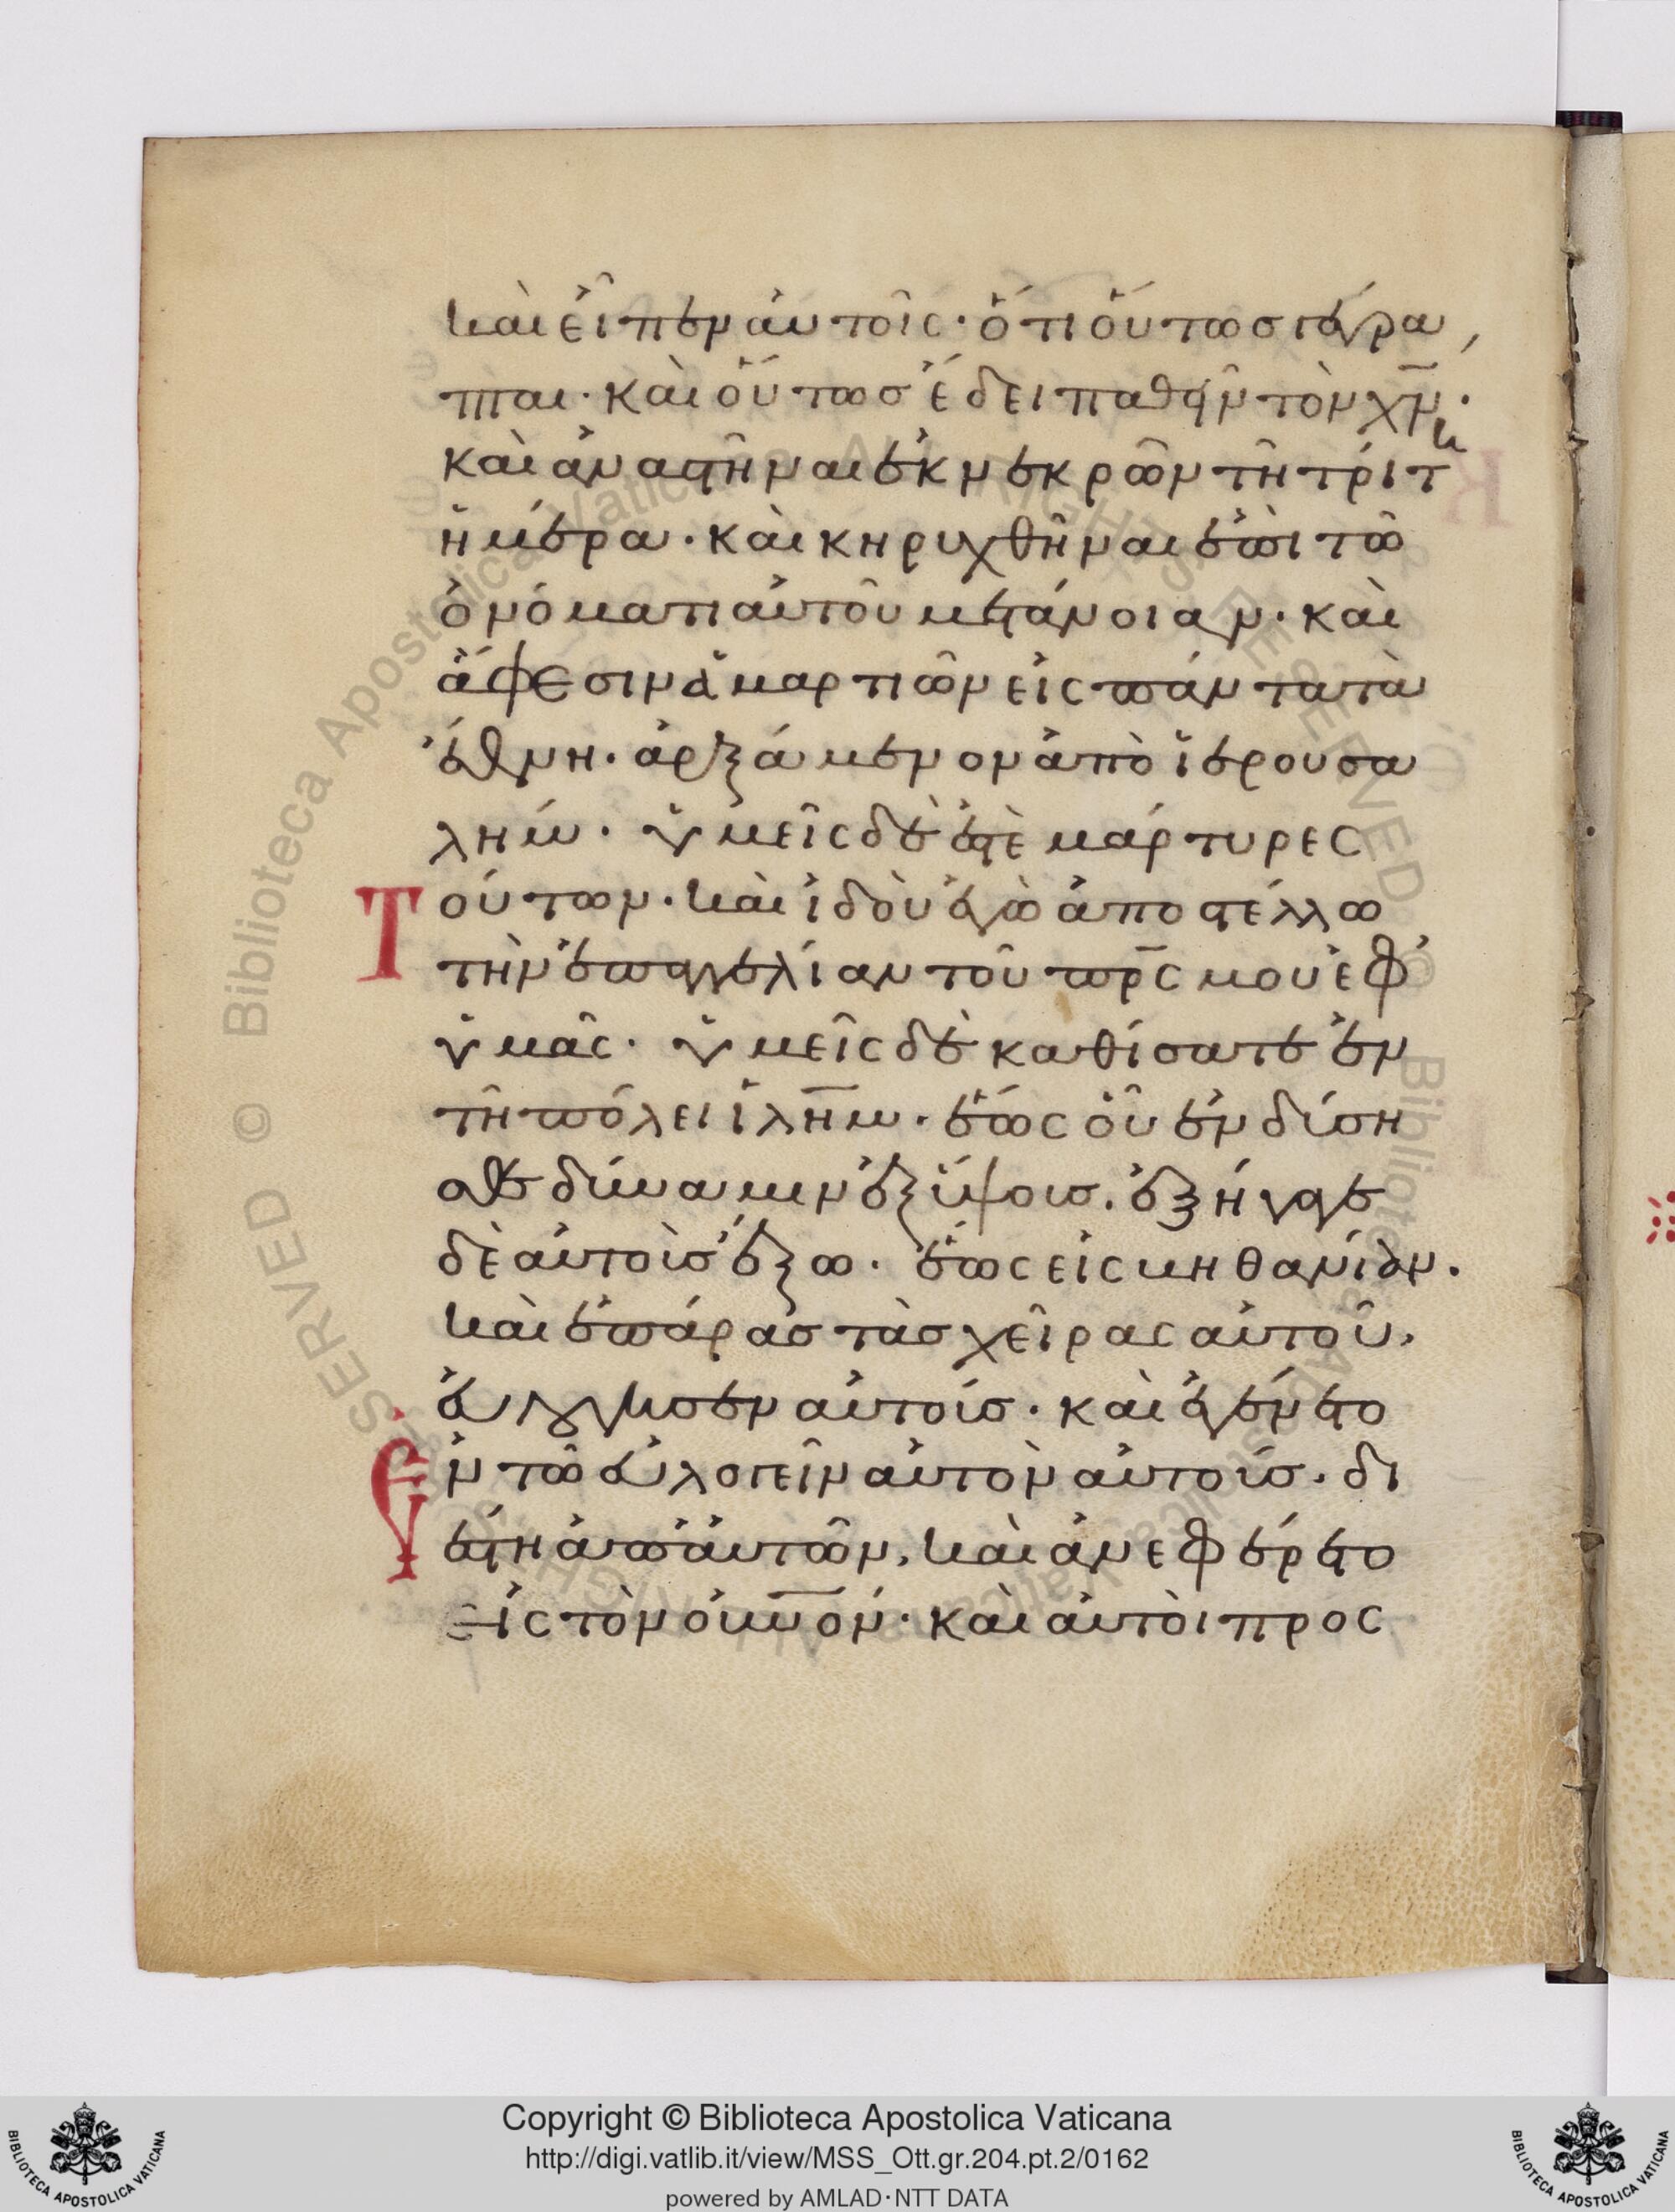 καὶ εἶπεν αὐτοῖς· ὅτι οὕτως γέγρα
πται· καὶ οὕτως ἔδει παθεῖν τὸν χν̅·
καὶ ἀναστῆναι ἐκ νεκρῶν τῆ τρίτη
ἡμέρα· καὶ κηρυχθῆναι ἐπὶ τῶ
ὀνόματι αὐτοῦ μετάνοιαν· καὶ
ἄφεσιν ἁμαρτιῶν εἰς πάντα τὰ
ἔθνη· ἀρξάμενον ἀπὸ ἱερουσα
λήμ· ὑμεῖς δὲ ἐστὲ μάρτυρες
Τούτων· καὶ ἰδοὺ ἐγὼ ἀποστέλλω
τὴν ἐπαγγελίαν τοῦ πρ̅ς μου ἐφ'
ὑμᾶς· ὑμεῖς δὲ καθίσατε ἐν
τῆ πόλει ἰλη̅μ· ἕως οὗ ἐνδύση
σθε δύναμιν ἐξ ὕψους. ἐξήγαγε
δὲ αὐτοὺς ἔξω· ἕως εἰς βηθανίαν.
καὶ ἐπάρας τὰς χεῖρας αὐτοῦ,
εὐλόγησεν αὐτούς· καὶ ἐγένετο
Ἐν τῶ εὐλογεῖν αὐτὸν αὐτούς. δι
έστη ἀπ' αὐτῶν, καὶ ἀνεφέρετο
εἰς τὸν οὐν̅όν· καὶ αὐτοὶ προς
SERVED © Biblioteca Apostolica Vaticana ALL RIGHTS RESERVED ©
Copyright © Biblioteca Apostolica Vaticana
http://digi.vatlib.it/view/MSS_Ott.gr.204.pt.2/0162
powered by AMLAD·NTT DATA
BIBLIOTECA APOSTOLICA VATICANA
BIBLIOTECA APOSTOLICA VATICANA